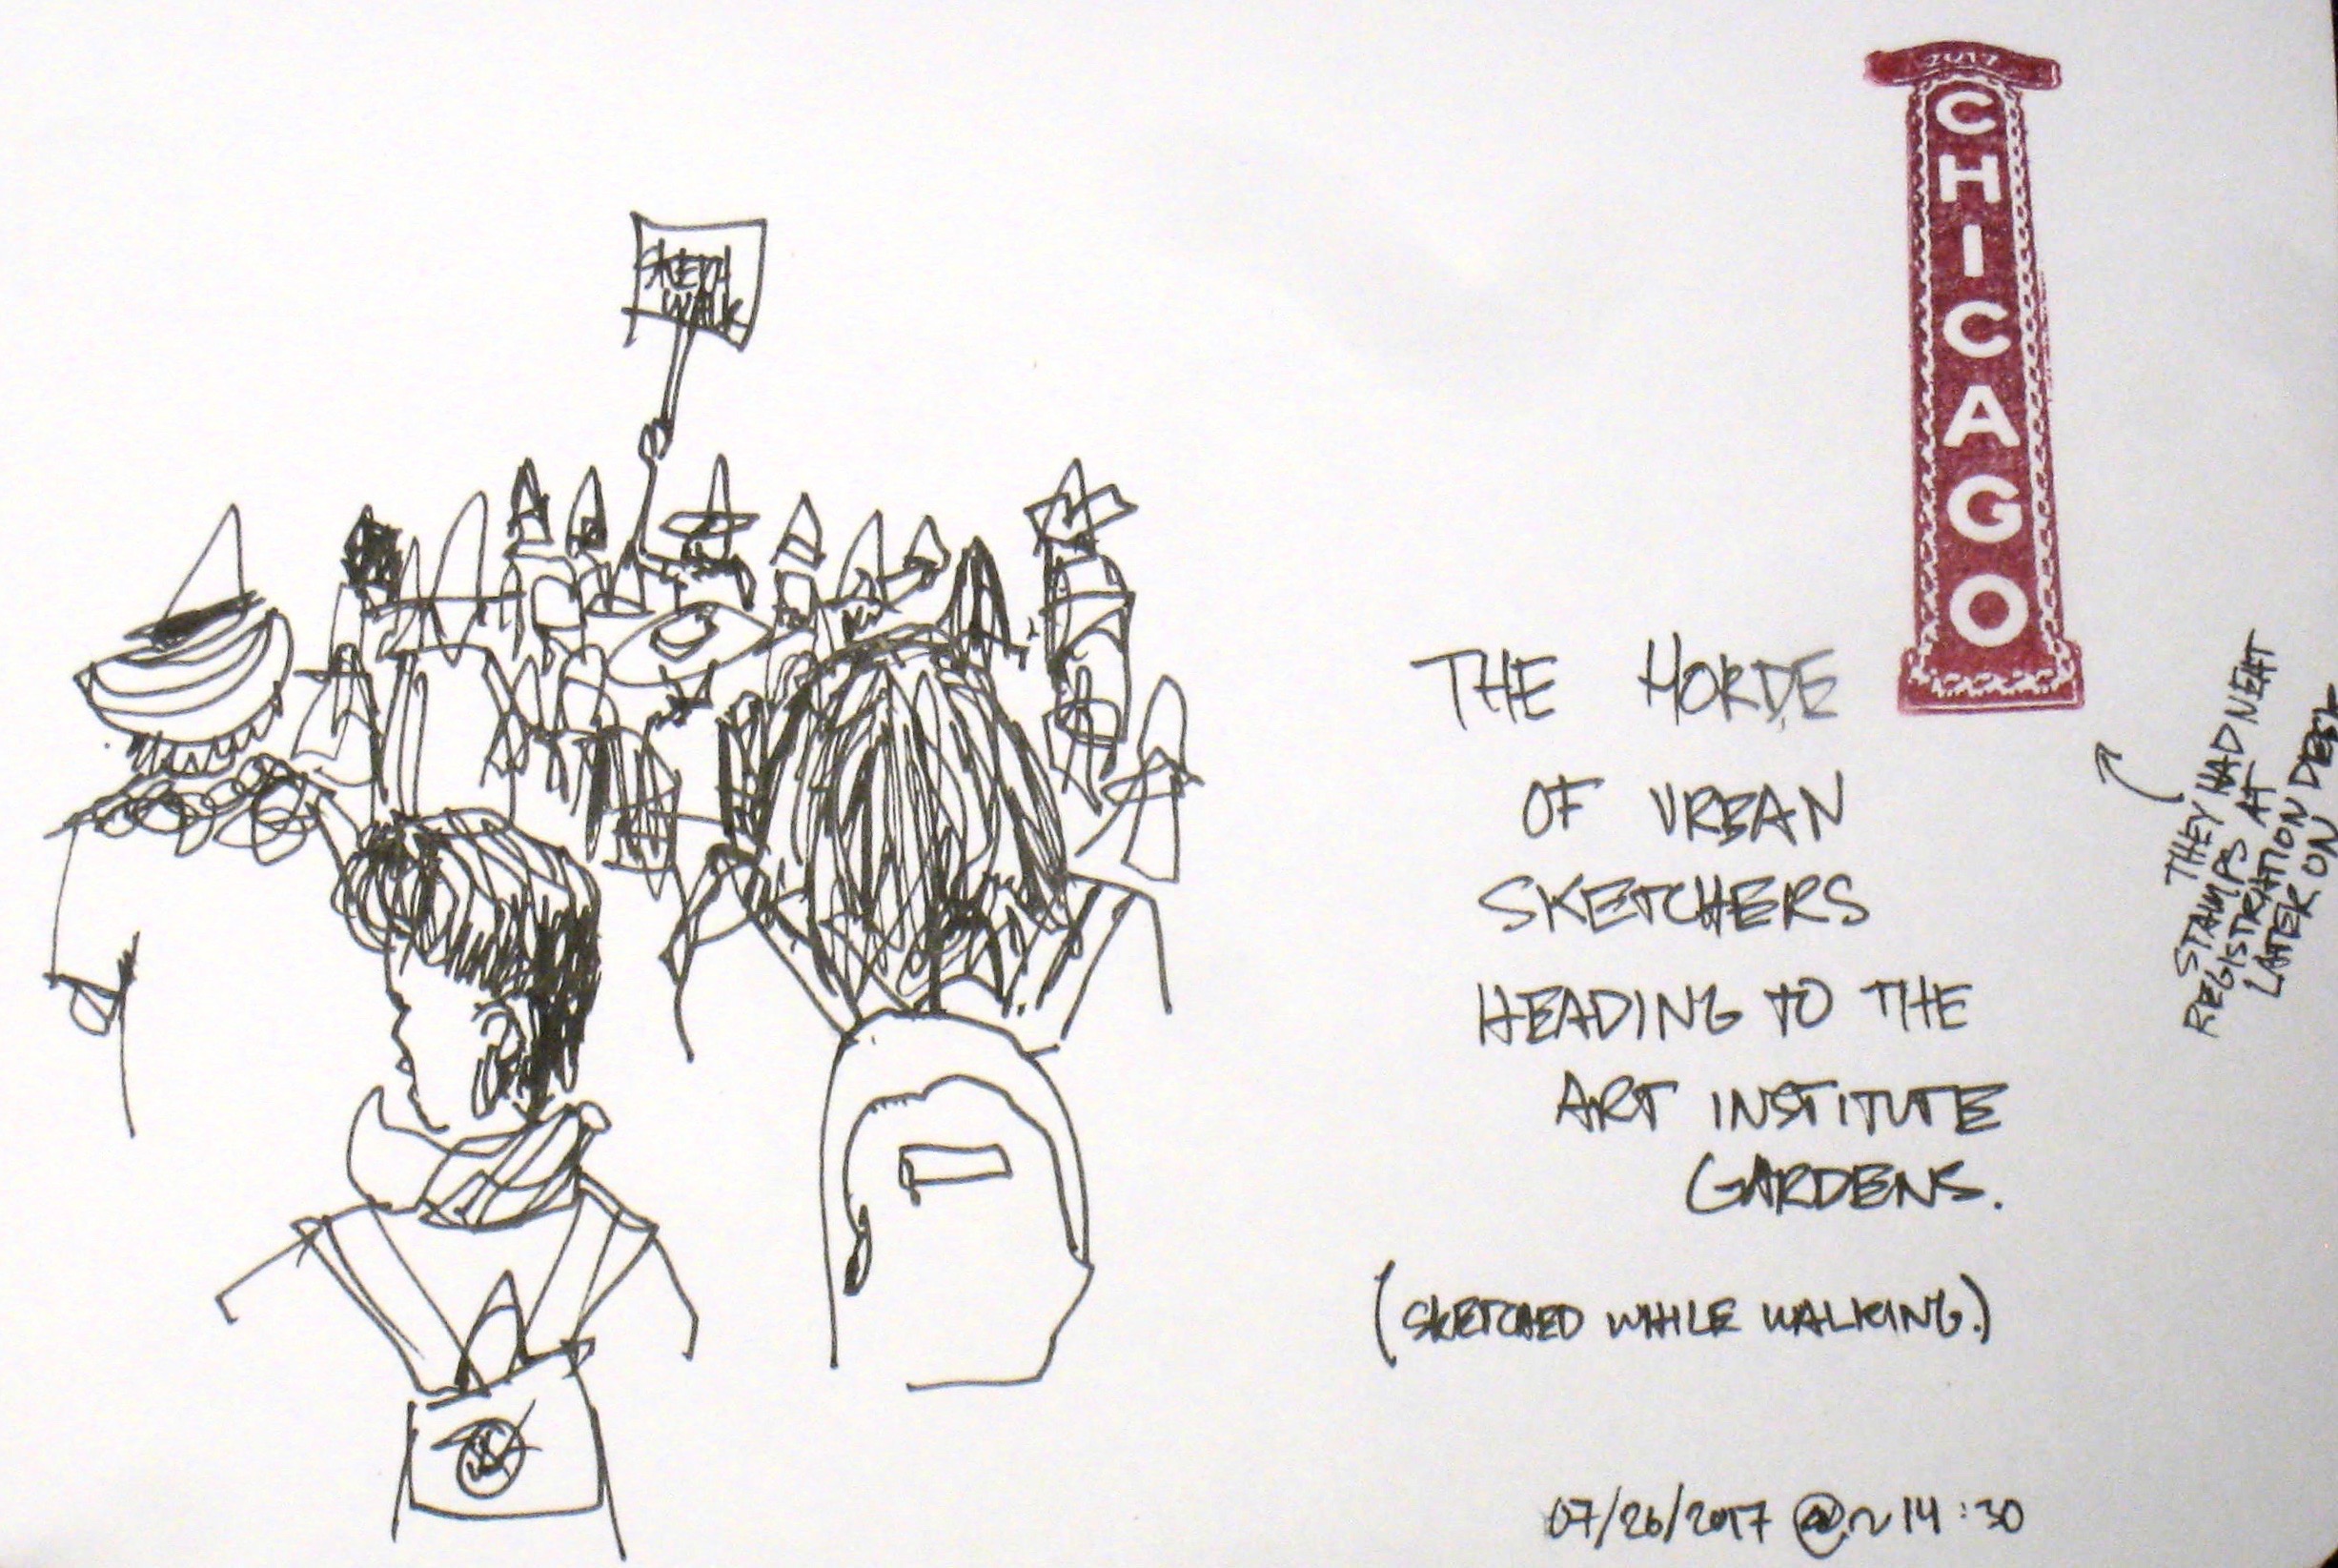 SKETCH
WALK
2017
CHICAGO
THE HORDE
OF URBAN
SKETCHERS
HEADING TO THE
ART INSTITUTE
GARDENS.
(SKETCHED WHILE WALKING.)
07/26/2017 @ ~ 14:30
THEY HAD NEAT
STAMPS AT
REGISTRATION DESK
LATER ON